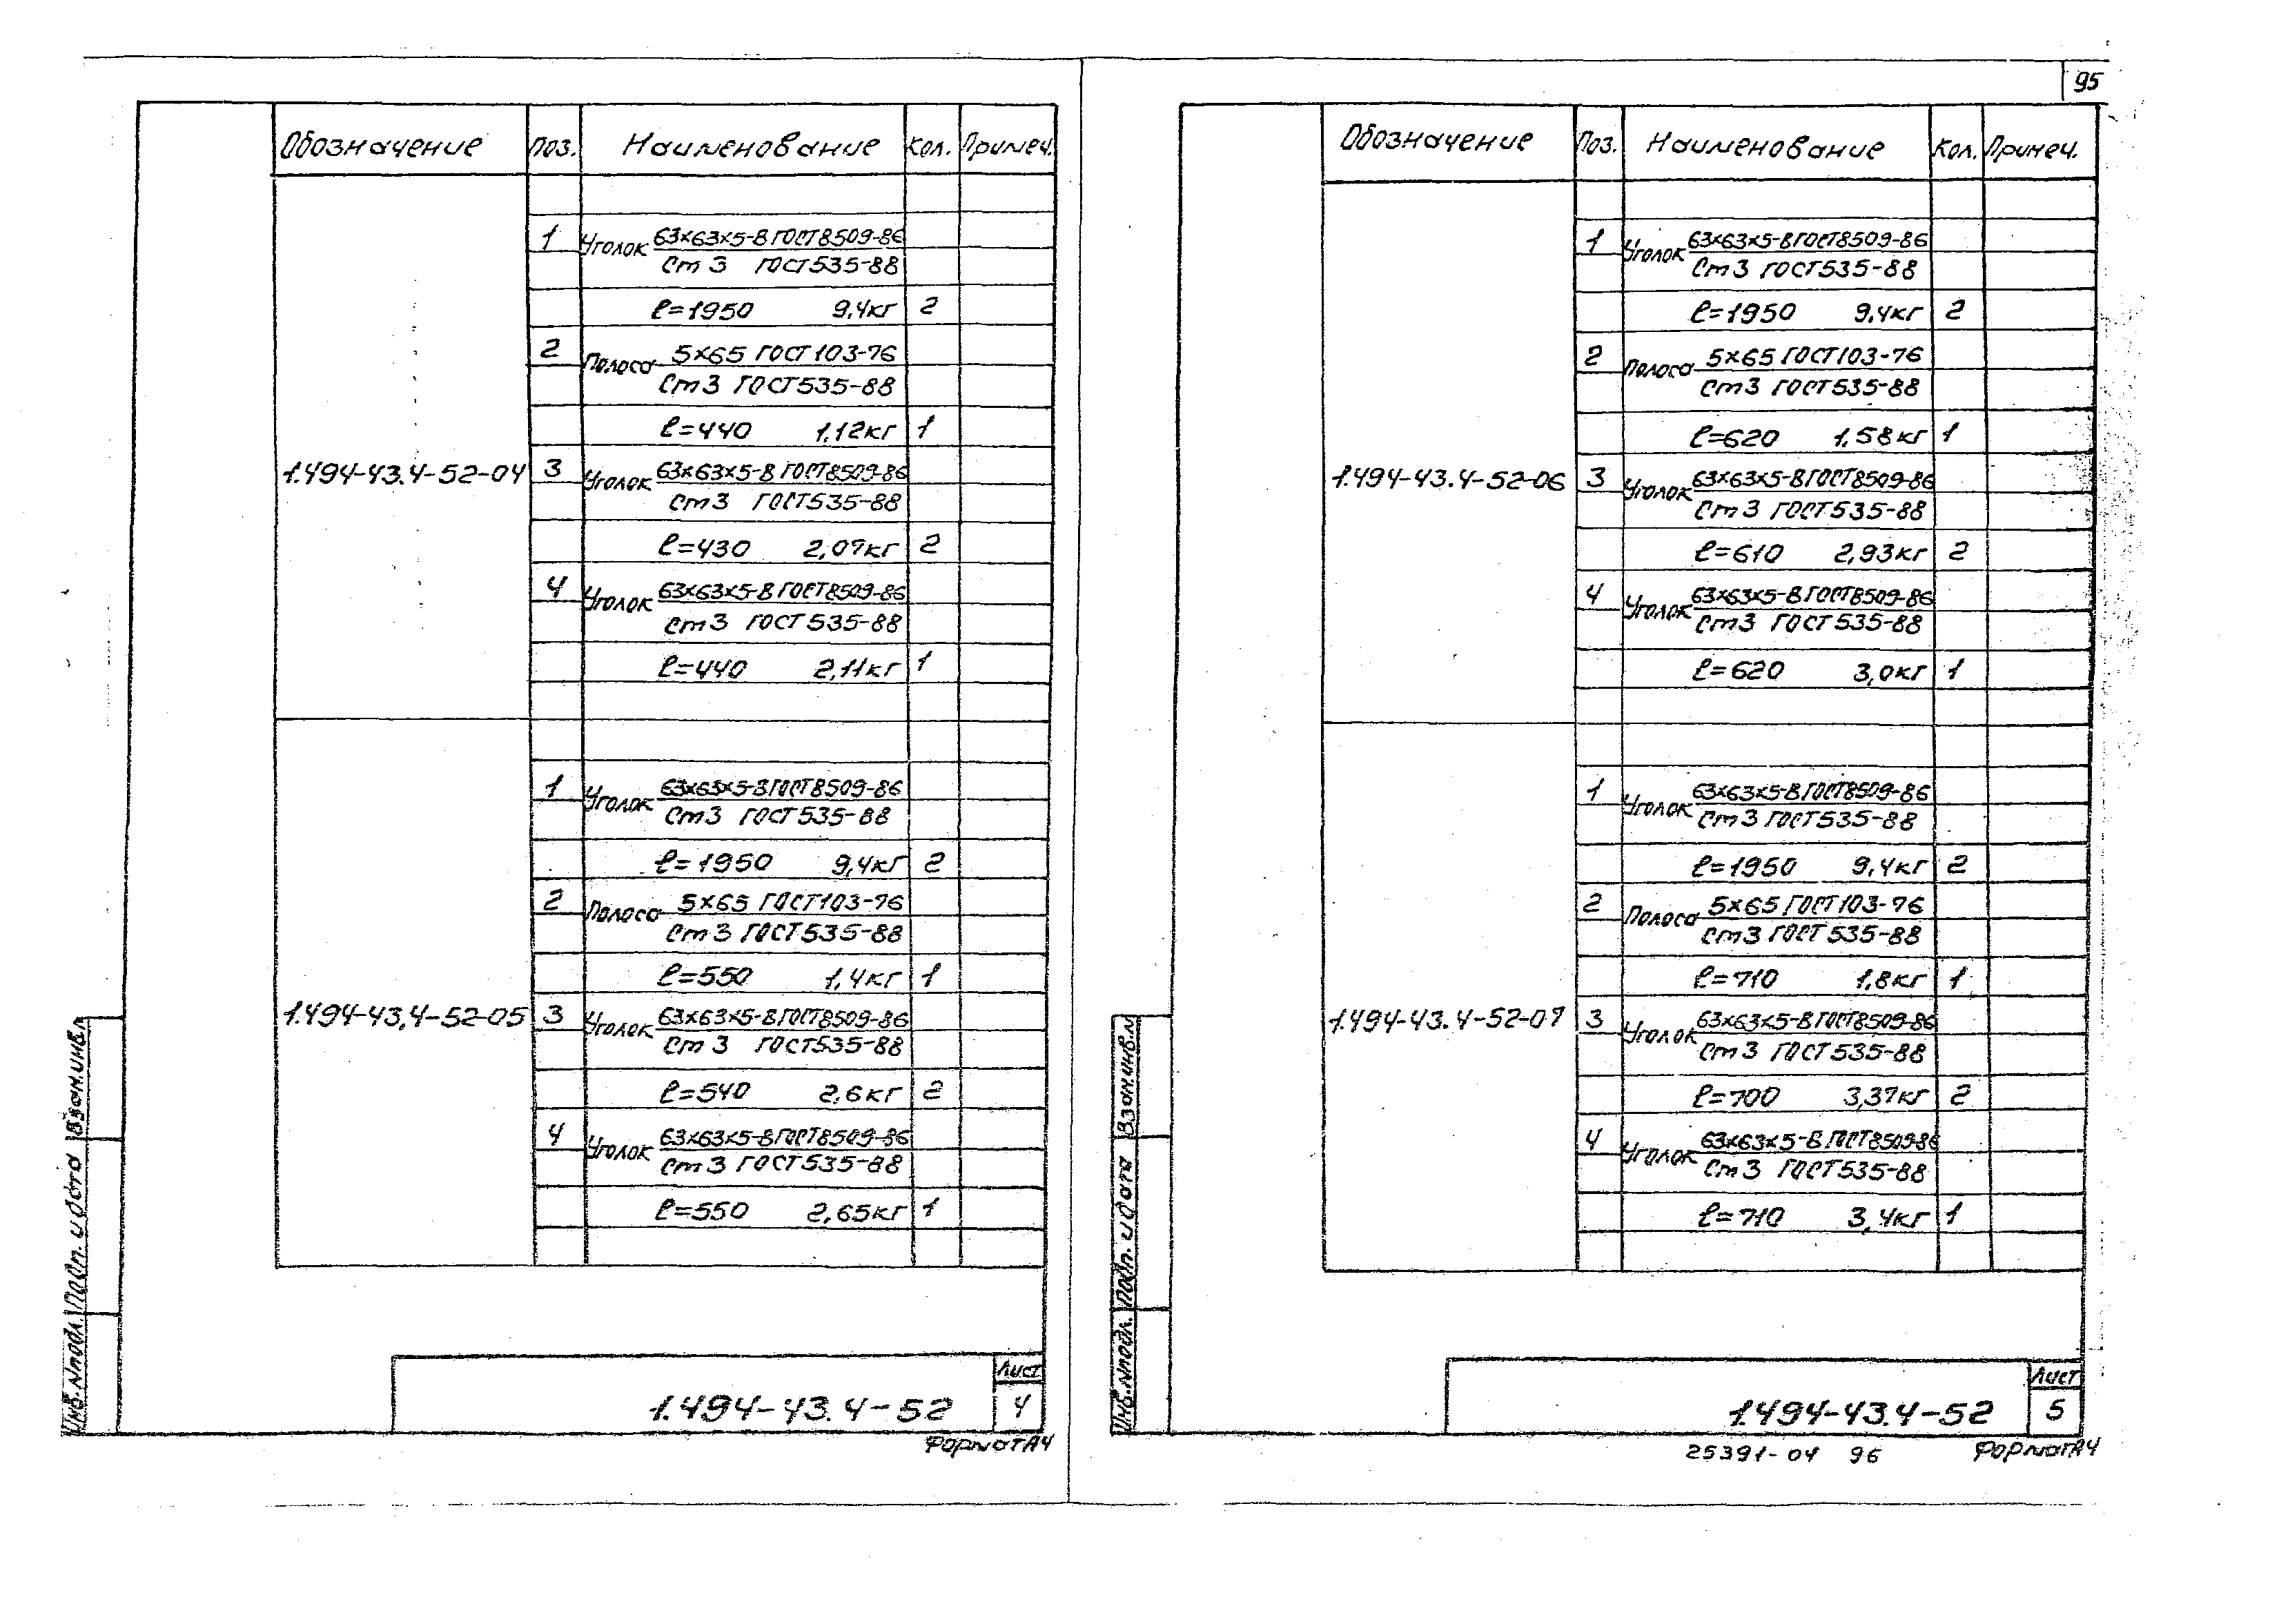 95
Обозначение Поз. Наименование Кол. Примеч.
1 Уголок 63×63×5-В ГОСТ 8509-86
Ст 3 ГОСТ 535-88
ℓ=1950 9,4кг 2
2 Полоса 5×65 ГОСТ 103-76
Ст 3 ГОСТ 535-88
ℓ=440 1,12кг 1
1.494-43.4-52-04 3 Уголок 63×63×5-В ГОСТ 8509-86
Ст 3 ГОСТ 535-88
ℓ=430 2,07кг 2
4 Уголок 63×63×5-В ГОСТ 8509-86
Ст 3 ГОСТ 535-88
ℓ=440 2,11кг 1
1 Уголок 63×63×5-В ГОСТ 8509-86
Ст 3 ГОСТ 535-88
ℓ=1950 9,4кг 2
2 Полоса 5×65 ГОСТ 103-76
Ст 3 ГОСТ 535-88
ℓ=550 1,4кг 1
1.494-43.4-52-05 3 Уголок 63×63×5-В ГОСТ 8509-86
Ст 3 ГОСТ 535-88
ℓ=540 2,6кг 2
4 Уголок 63×63×5-В ГОСТ 8509-86
Ст 3 ГОСТ 535-88
ℓ=550 2,65кг 1
Инв.№подл. Подп. и дата Взам.инв.№
Лист
1.494-43.4-52 4
Формат А4
Обозначение Поз. Наименование Кол. Примеч.
1 Уголок 63×63×5-В ГОСТ 8509-86
Ст 3 ГОСТ 535-88
ℓ=1950 9,4кг 2
2 Полоса 5×65 ГОСТ 103-76
Ст 3 ГОСТ 535-88
ℓ=620 1,58кг 1
1.494-43.4-52-06 3 Уголок 63×63×5-В ГОСТ 8509-86
Ст 3 ГОСТ 535-88
ℓ=610 2,93кг 2
4 Уголок 63×63×5-В ГОСТ 8509-86
Ст 3 ГОСТ 535-88
ℓ=620 3,0кг 1
1 Уголок 63×63×5-В ГОСТ 8509-86
Ст 3 ГОСТ 535-88
ℓ=1950 9,4кг 2
2 Полоса 5×65 ГОСТ 103-76
Ст 3 ГОСТ 535-88
ℓ=710 1,8кг 1
1.494-43.4-52-07 3 Уголок 63×63×5-В ГОСТ 8509-86
Ст 3 ГОСТ 535-88
ℓ=700 3,37кг 2
4 Уголок 63×63×5-В ГОСТ 8509-86
Ст 3 ГОСТ 535-88
ℓ=710 3,4кг 1
Инв.№подл. Подп. и дата Взам.инв.№
Лист
1.494-43.4-52 5
25391-04 96 Формат А4